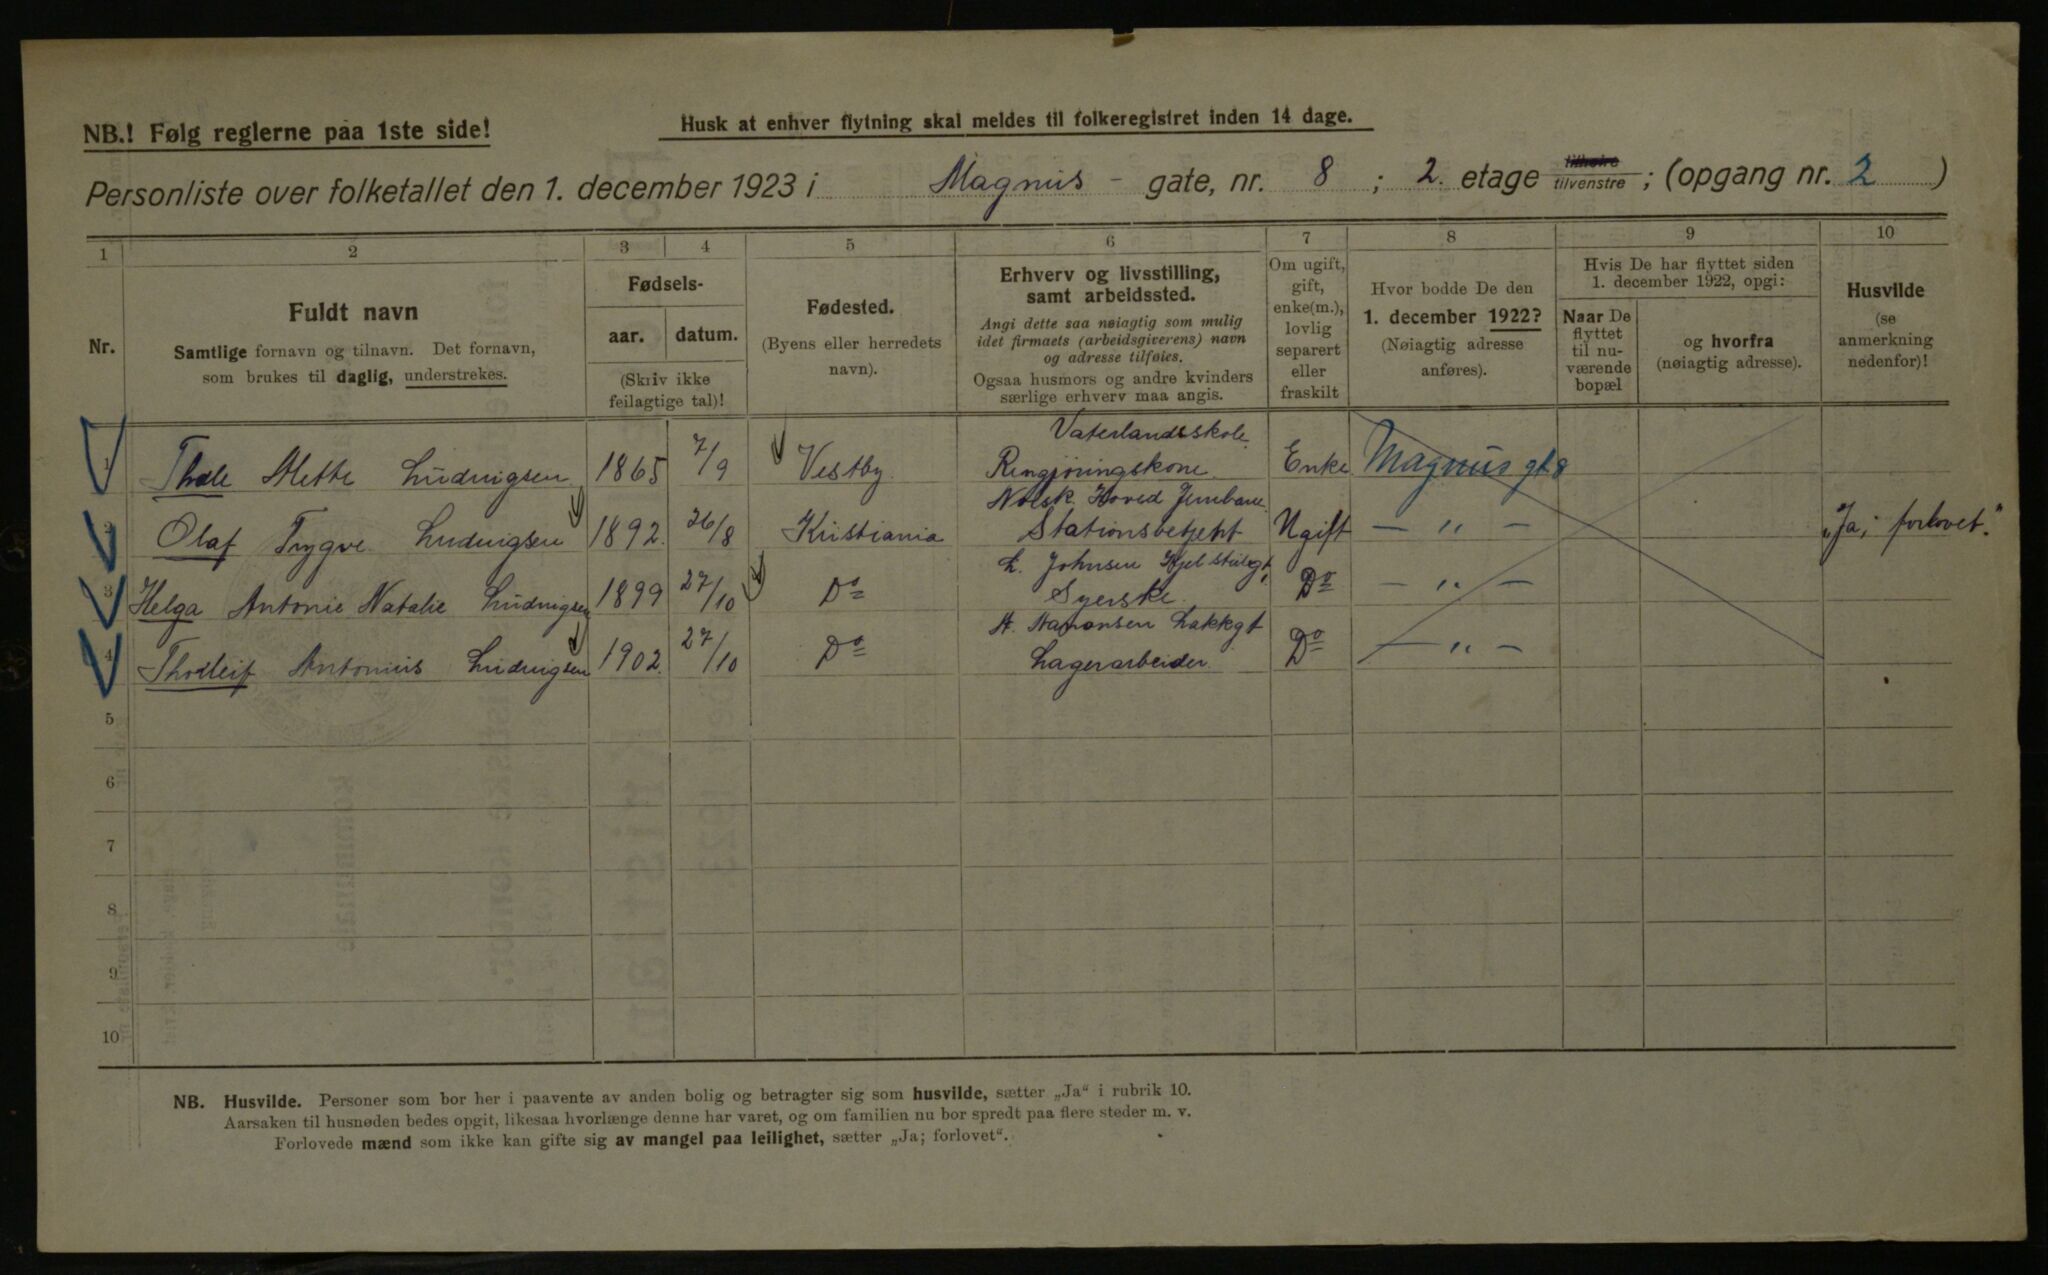 NB.! Følg reglerne paa 1ste side!
Husk at enhver flytning skal meldes til folkeregistret inden 14 dage.
Personliste over folketallet den 1. december 1923 i Magnus - gate, nr. 8 ; 2. etage tilhøire tilvenstre ; (opgang nr. 2 )
1 2 3 4 5 6 7 8 9 10
Nr.
Fuldt navn
Samtlige fornavn og tilnavn. Det fornavn,
som brukes til daglig, understrekes.
Fødsels-
aar. datum.
(Skriv ikke
feilagtige tal)!
Fødested.
(Byens eller herredets
navn).
Erhverv og livsstilling,
samt arbeidssted.
Angi dette saa nøiagtig som mulig
idet firmaets (arbeidsgiverens) navn
og adresse tilføies.
Ogsaa husmors og andre kvinders
særlige erhverv maa angis.
Om ugift,
gift,
enke(m.),
lovlig
separert
eller
fraskilt
Hvor bodde De den
1. december 1922?
(Nøiagtig adresse
anføres).
Hvis De har flyttet siden
1. december 1922, opgi:
Naar De
flyttet
til nu-
værende
bopæl
og hvorfra
(nøiagtig adresse).
Husvilde
(se
anmerkning
nedenfor)!
Vaterlandsskole.
1 Mette Ludvigsen 1865 7/9 Vestby. Rengjøringskone. Enke Magnus gt 8
Norsk Hoved Jernbane
2 Olaf Trygve Ludvigsen 1892. 26/8 Kristiania Stationsbetjent Ugift — „ — „Ja; forlovet."
L. Johnsen
3 Helga Antonie Natalie Ludvigsen 1899 27/10 Do Syerske. Do — „ —
Lakkgt
4 Thorleif Antonius Ludvigsen 1902. 27/10 Do Lagerarbeider. Do — „ —
5
6
7
8
9
10
NB. Husvilde. Personer som bor her i paavente av anden bolig og betragter sig som husvilde, sætter „Ja“ i rubrik 10.
Aarsaken til husnøden bedes opgit, likesaa hvorlænge denne har varet, og om familien nu bor spredt paa flere steder m. v.
Forlovede mænd som ikke kan gifte sig av mangel paa leilighet, sætter „Ja; forlovet“.